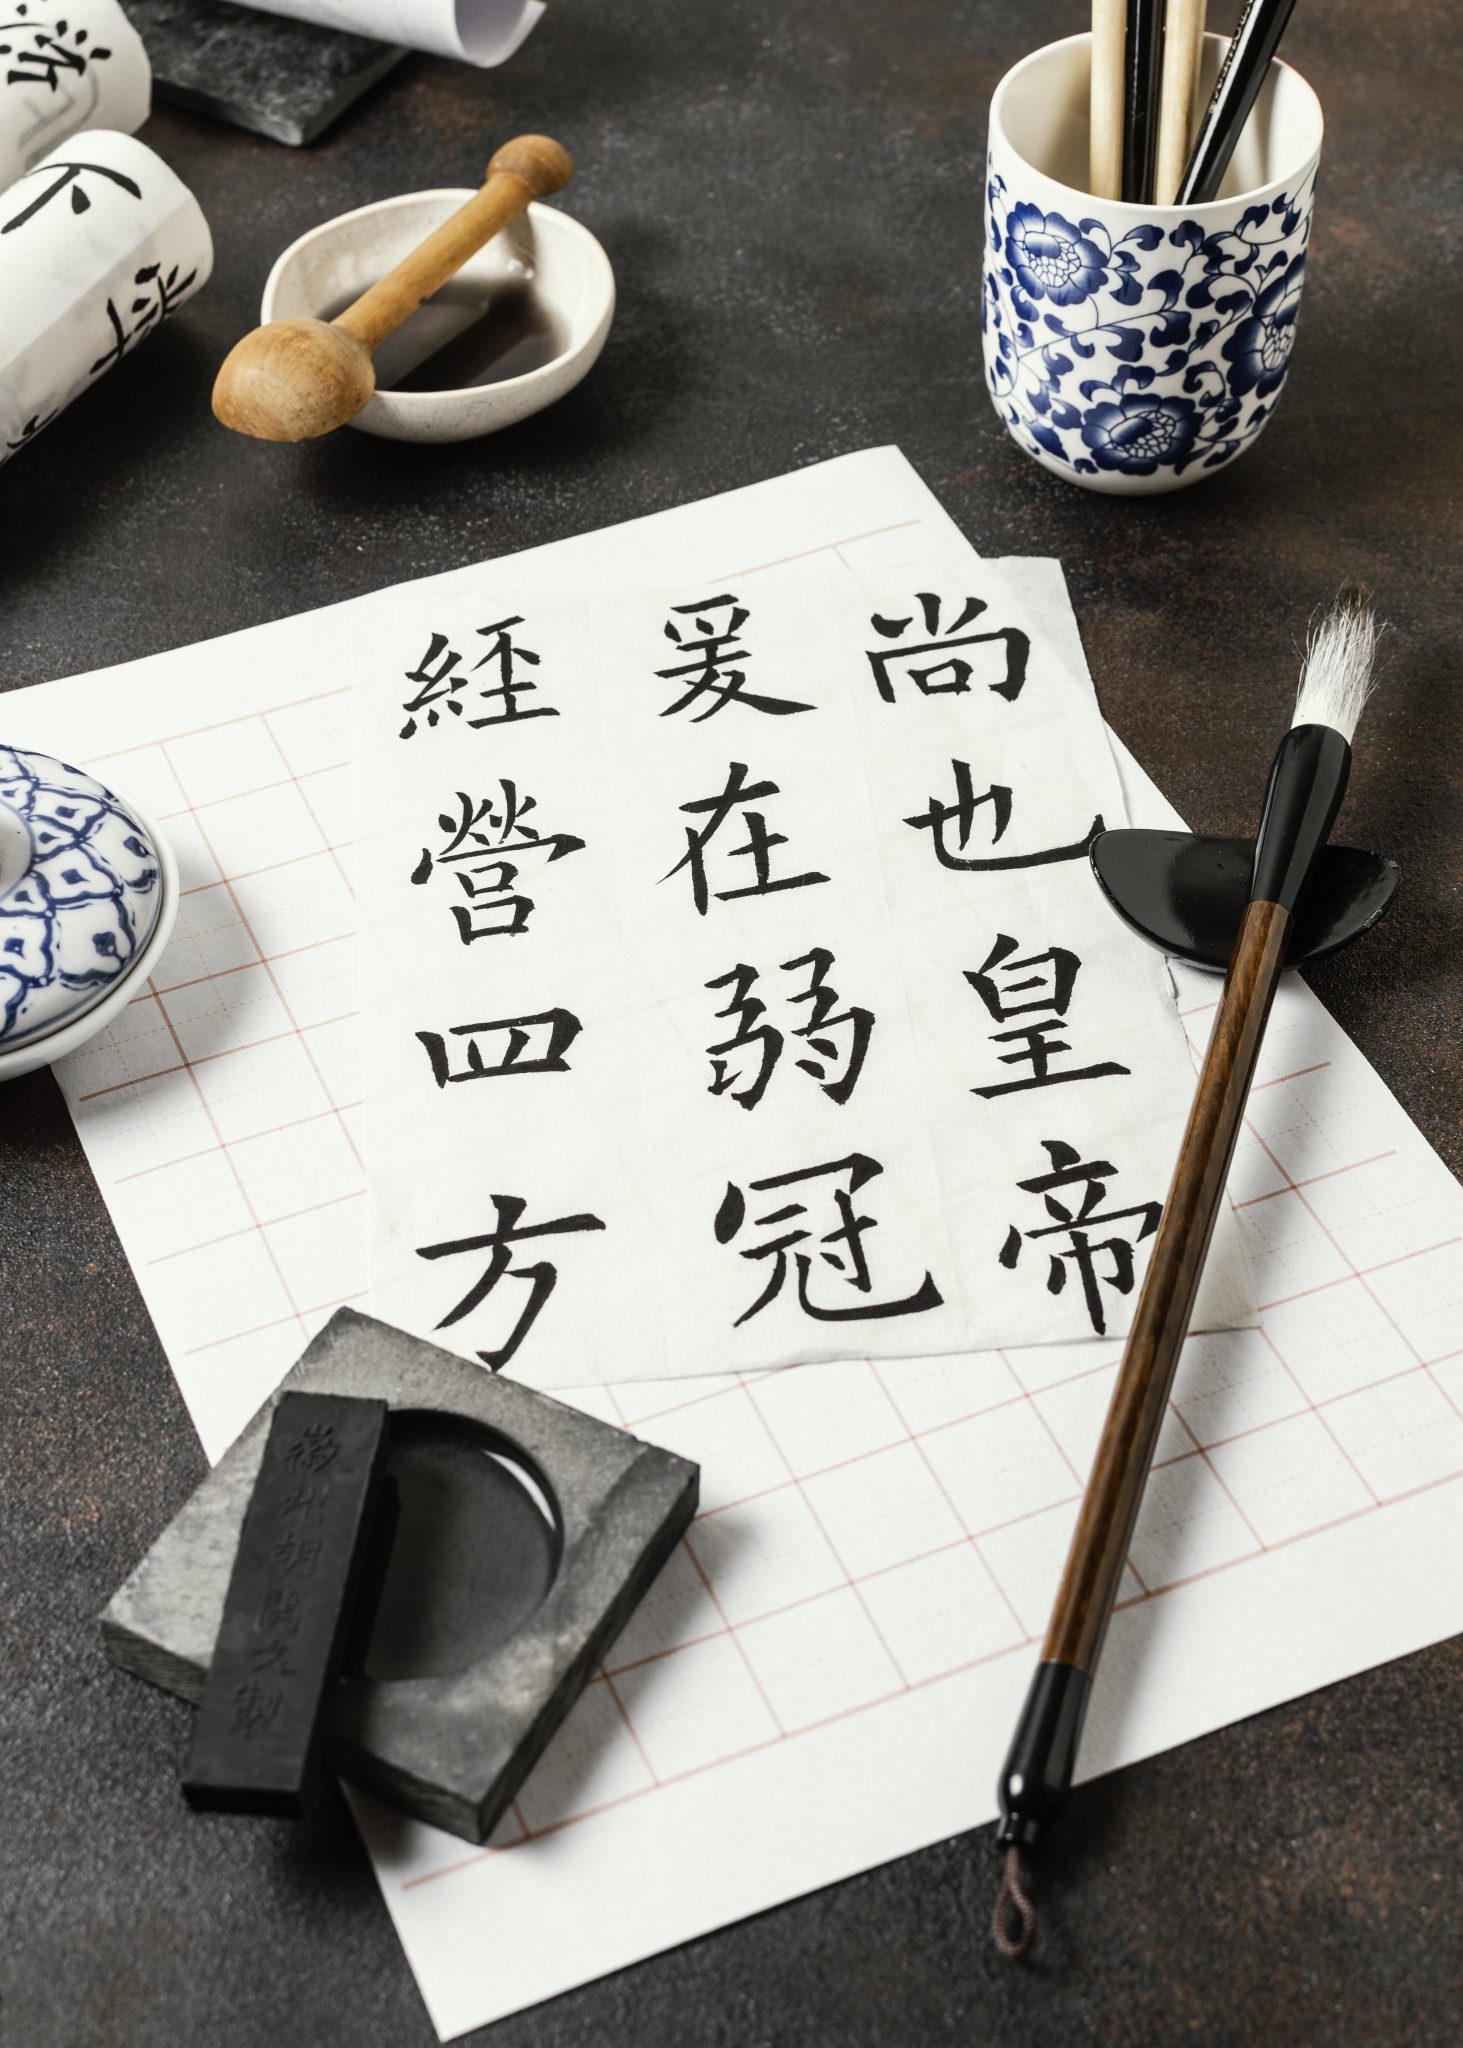 尚也皇帝
爰在弱冠
經營四方
徽州胡開文製
下